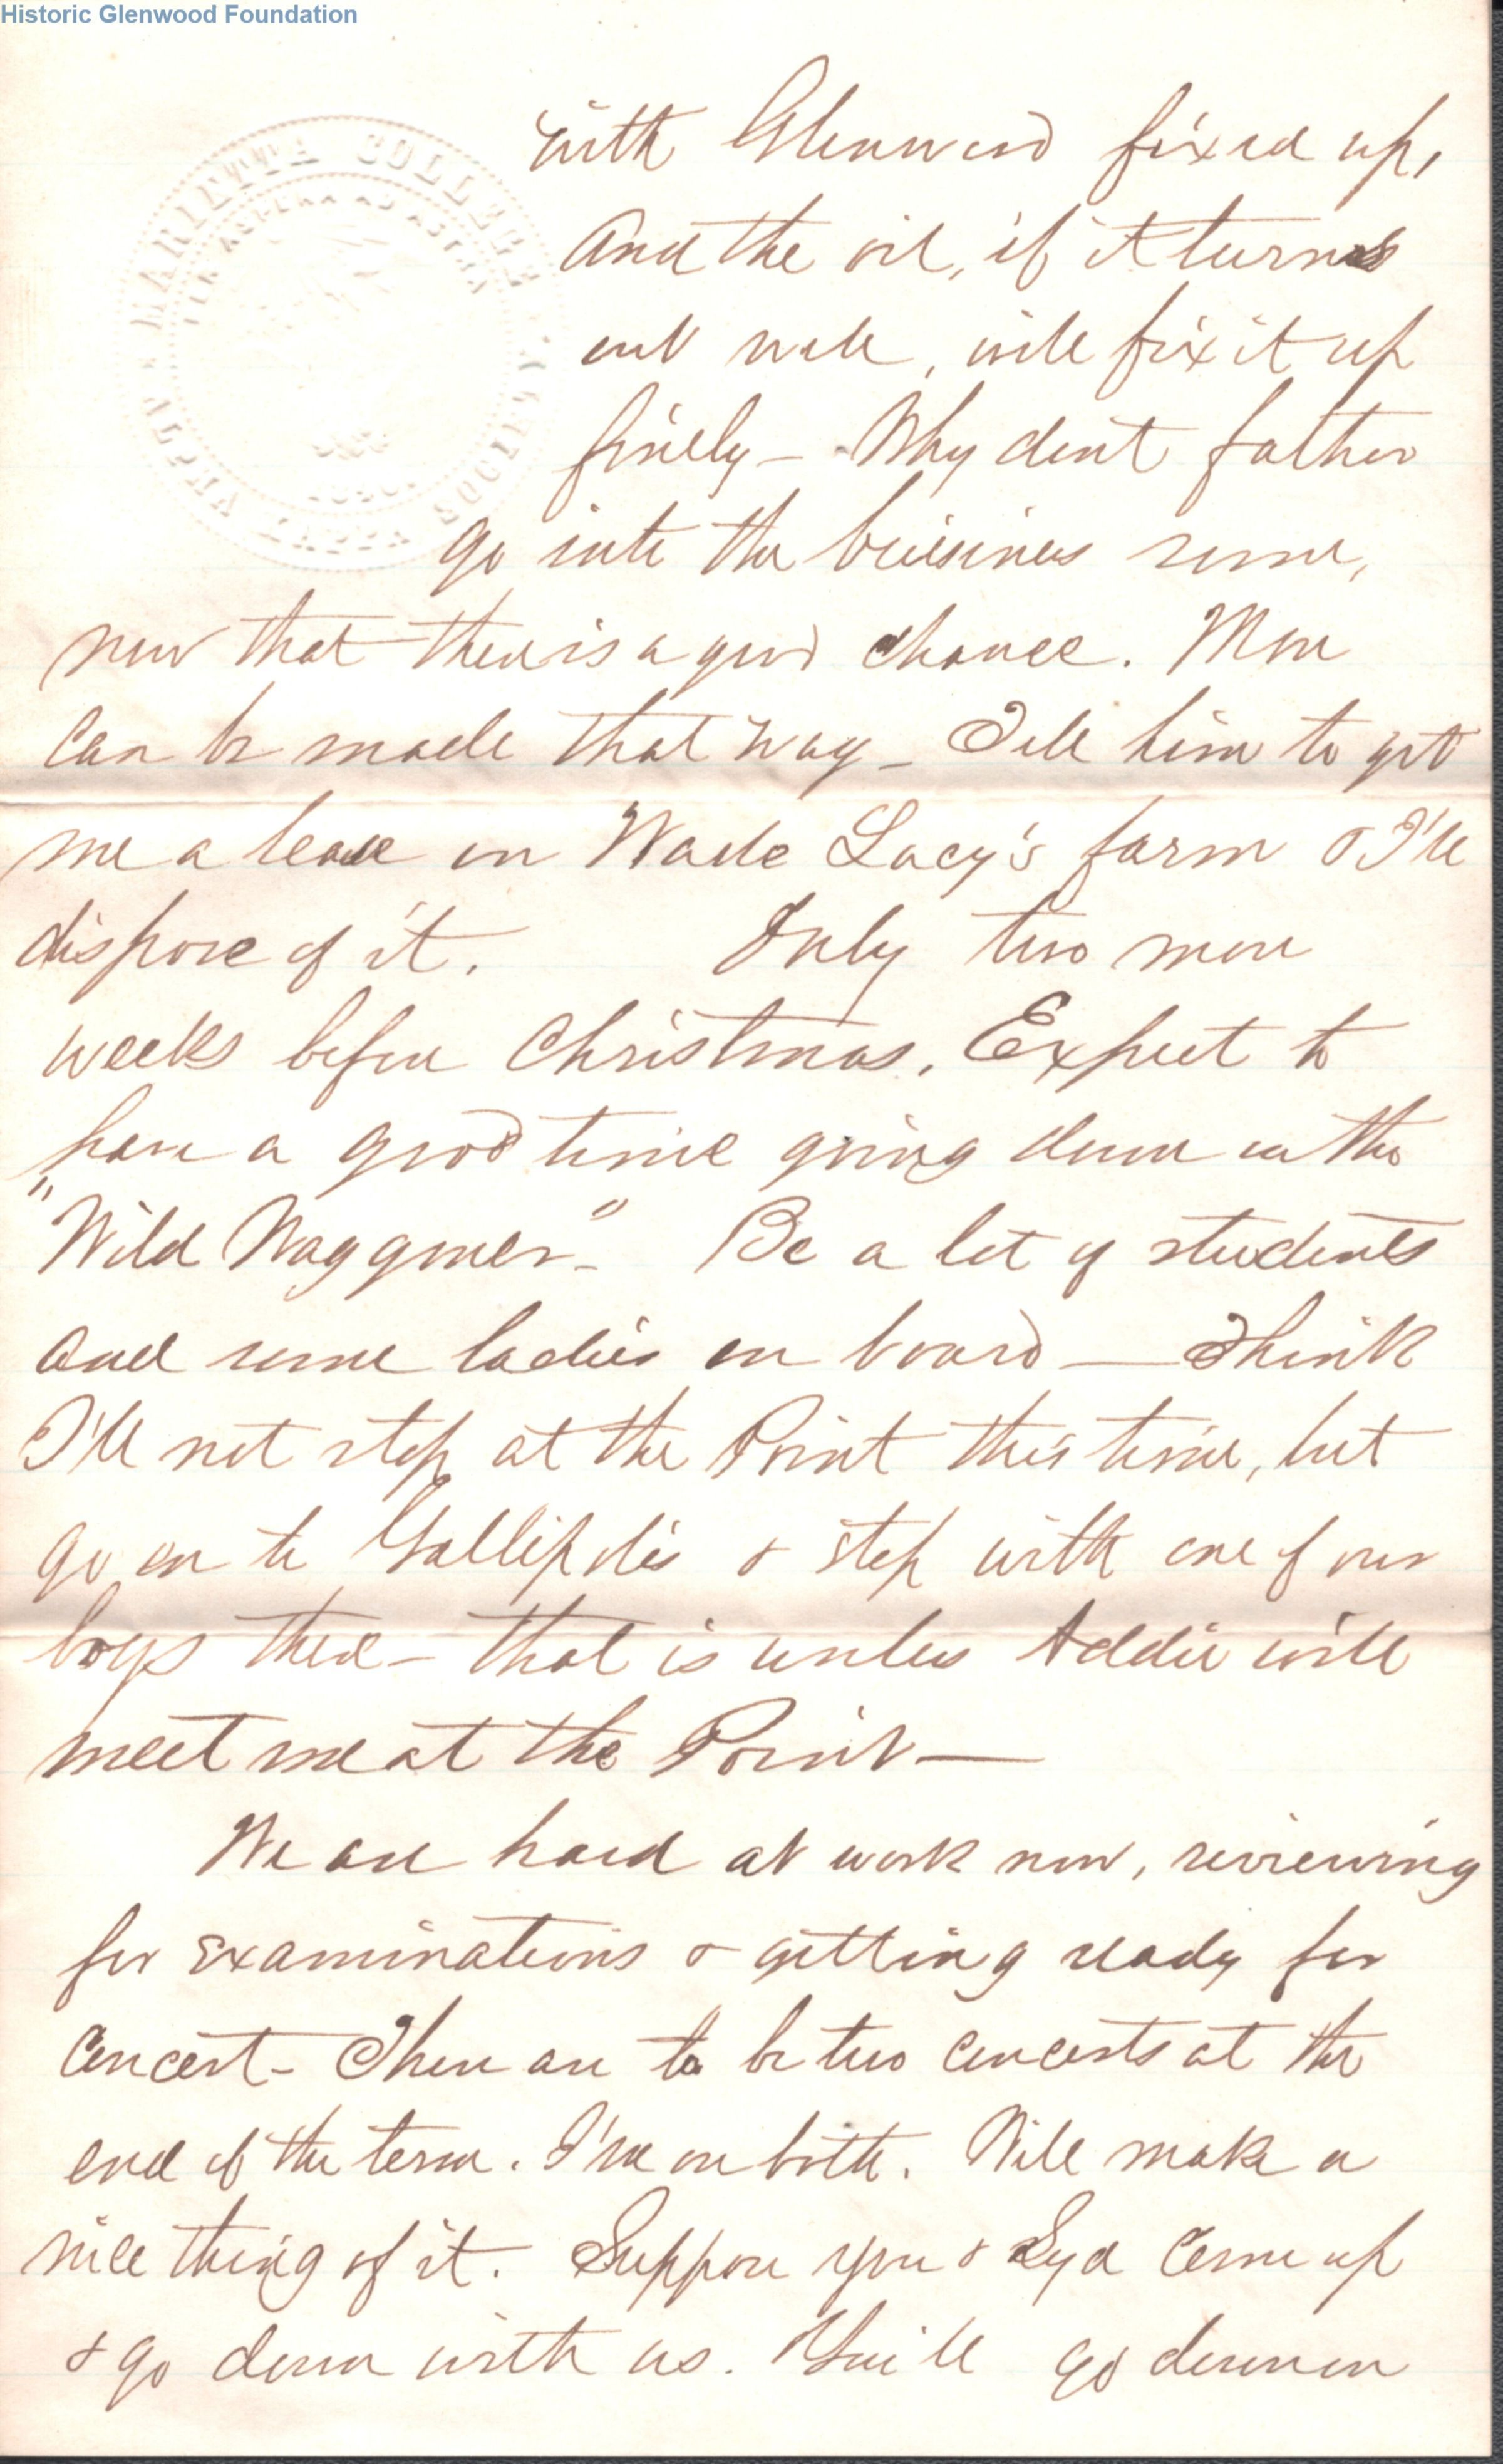 Historic Glenwood Foundation
MARIETTA COLLEGE
ALPHA KAPPA SOCIETY
PER ASPERA AD ASTRA
with Glenwood fixed up,
And the oil, if it turns
out well, will fix it up
finely – Why dont father
go into the buisiness some,
now that there is a good chance. More
can be made that way – Tell him to get
me a lease on Wade Lacy's farm & I'll
dispose of it. Only two more
weeks before Christmas. Expect to
have a good time going down on the
"Wild Waggoner" – Be a lot of students
and some ladies on board — Think
I'll not stop at the Point this time, but
go on to Gallipolis & stop with one of our
boys there – that is unless Addie will
meet me at the Point —
We are hard at work now, reviewing
for examinations & getting ready for
Concert – There are to be two concerts at the
end of the term. I'm on both. Will make a
nice thing of it. Suppose you & Syd come up
& go down with us. You'll go down on